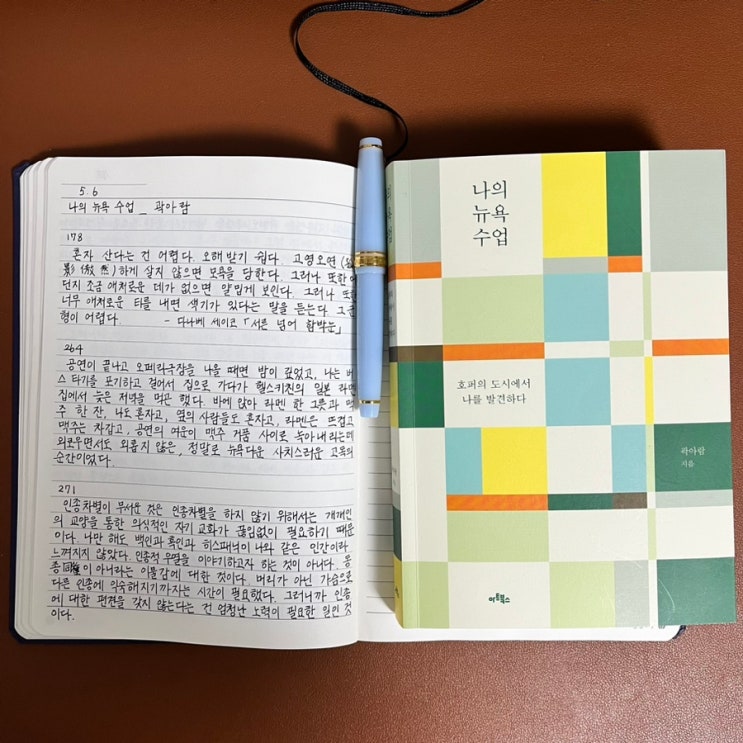 5.6
나의 뉴욕 수업 _ 곽아람
178
혼자 산다는 건 어렵다. 오해 받기 쉽다. 고영오연(
影傲然)하게 살지 않으면 모욕을 당한다. 그러나 또한
딘지 조금 애처로운 데가 없으면 얄밉게 보인다. 그러나 또한
너무 애처로운 티를 내면 색기가 있다는 말을 듣는다. 그
형이 어렵다. - 다나베 세이코 「서른 넘어 함박눈」
264
공연이 끝나고 오페라극장을 나올 때면 밤이 깊었고, 나는 버
스 타기를 포기하고 걸어서 집으로 가다가 헬스키친의 일본 라멘
집에서 늦은 저녁을 먹곤 했다. 바에 앉아 라멘 한 그릇과 맥
주 한 잔, 나도 혼자고, 옆의 사람들도 혼자고, 라멘은 뜨겁고
맥주는 차갑고, 공연의 여운이 맥주 거품 사이로 녹아내리는데
외로우면서도 외롭지 않은, 정말로 뉴욕다운 사치스러운 고독의
순간이었다.
271
인종차별이 무서운 것은 인종차별을 하지 않기 위해서는 개개인
의 교양을 통한 의식적인 자기 교화가 끊임없이 필요하기 때문
이다. 나만 해도 백인과 흑인과 히스패닉이 나와 같은 인간이라
느껴지지 않았다. 인종적 우열을 이야기하고자 하는 것이 아니다. 동
종이 아니라는 이물감에 대한 것이다. 머리가 아닌 가슴으로
다른 인종에 익숙해지기까지는 시간이 필요했다. 그러니까 인종
에 대한 편견을 갖지 않는다는 건 엄청난 노력이 필요한 일인 것
이다.
나의
뉴욕
수업
호퍼의 도시에서
나를 발견하다
곽아람
지음
아트북스